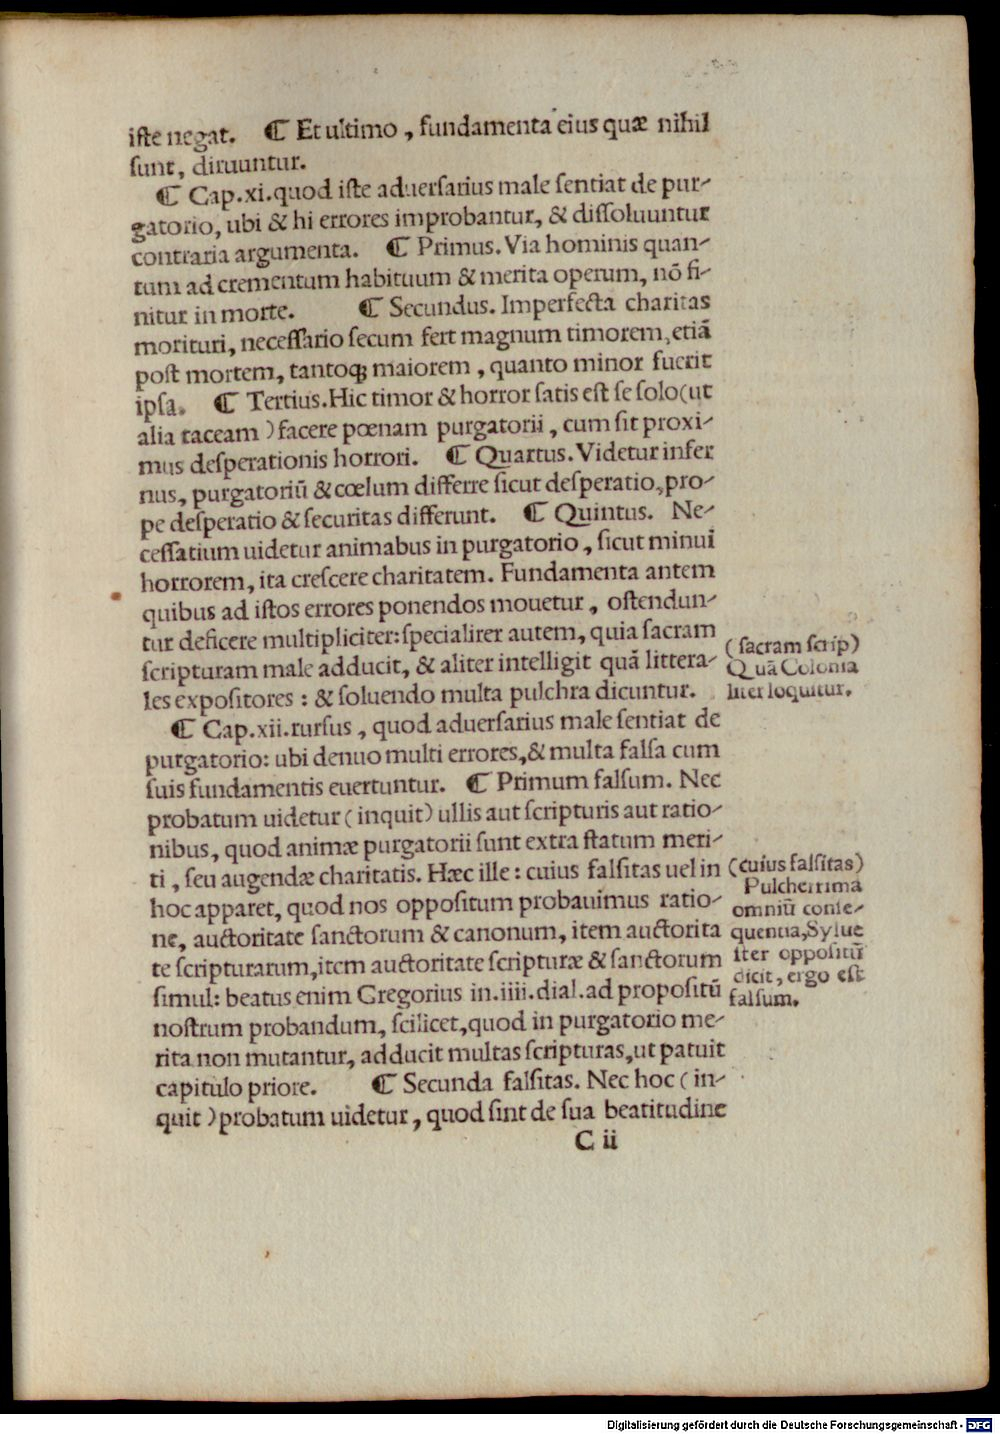 iſte negat. ⁋ Et ultimo, fundamenta eius quæ nihil
ſunt, diruuntur.
⁋ Cap.xi.quod iſte aduerſarius male ſentiat de pur-
gatorio, ubi & hi errores improbantur, & diſſoluuntur
contraria argumenta. ⁋ Primus. Via hominis quan-
tum ad crementum habituum & merita operum, nō fi-
nitur in morte. ⁋ Secundus. Imperfecta charitas
morituri, neceſſario ſecum fert magnum timorem, etiā
poſt mortem, tantoꝗ maiorem, quanto minor fuerit
ipſa. ⁋ Tertius. Hic timor & horror ſatis eſt ſe ſolo (ut
alia taceam) facere pœnam purgatorii, cum ſit proxi-
mus deſperationis horrori. ⁋ Quartus. Videtur infer
nus, purgatoriū & cœlum differre ſicut deſperatio, pro-
pe deſperatio & ſecuritas differunt. ⁋ Quintus. Ne-
ceſſatium uidetur animabus in purgatorio, ſicut minui
horrorem, ita creſcere charitatem. Fundamenta antem
quibus ad iſtos errores ponendos mouetur, oſtendun-
tur deficere multipliciter: ſpecialirer autem, quia ſacram
ſcripturam male adducit, & aliter intelligit quā littera-
les expoſitores: & ſoluendo multa pulchra dicuntur.
(ſacram ſcrip)
Quā Colonia
liter loquitur.
⁋ Cap.xii.rurſus, quod aduerſarius male ſentiat de
purgatorio: ubi denuo multi errores, & multa falſa cum
ſuis fundamentis euertuntur. ⁋ Primum falſum. Nec
probatum uidetur (inquit) ullis aut ſcripturis aut ratio-
nibus, quod animæ purgatorii ſunt extra ſtatum meri-
ti, ſeu augendæ charitatis. Hæc ille: cuius falſitas uel in
hoc apparet, quod nos oppoſitum probauimus ratio-
ne, auctoritate ſanctorum & canonum, item auctorita
te ſcripturarum, item auctoritate ſcripturæ & ſanctorum
ſimul: beatus enim Gregorius in.iiii.dial.ad propoſitū
noſtrum probandum, ſcilicet, quod in purgatorio me-
rita non mutantur, adducit multas ſcripturas, ut patuit
capitulo priore. ⁋ Secunda falſitas. Nec hoc (in-
quit) probatum uidetur, quod ſint de ſua beatitudine
(cuius falſitas)
Pulcherrima
omniū conſe-
quentia, Sylue
ſter oppoſitū
dicit, ergo eſt
falſum.
C ii
Digitalisierung gefördert durch die Deutsche Forschungsgemeinschaft - DFG